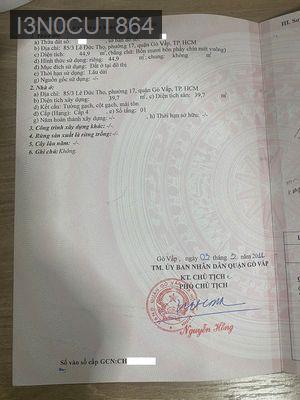 I3N0CUT864
a) Thửa đất số:
b) Địa chỉ: 85/3 Lê Đức Thọ, phường 17, quận Gò Vấp, TP. HCM
c) Diện tích: 44,9 m², (bằng chữ: Bốn mươi bốn phẩy chín mét vuông)
d) Hình thức sử dụng: riêng: 44,9 m²; chung: không m²
đ) Mục đích sử dụng: Đất ở tại đô thị
e) Thời hạn sử dụng: Lâu dài
g) Nguồn gốc sử dụng: -/-
2. Nhà ở:
a) Địa chỉ: 85/3 Lê Đức Thọ, phường 17, quận Gò Vấp, TP. HCM
b) Diện tích xây dựng: 39,7 m², c) Diện tích sàn: 39,7 m²
d) Kết cấu: Tường gạch, cột gạch, mái tôn
đ) Cấp (Hạng): Cấp 4 e) Số tầng: 01
g) Năm hoàn thành xây dựng: -/- h) Thời hạn sở hữu: -/-
3. Công trình xây dựng khác: -/-
4. Rừng sản xuất là rừng trồng: -/-
5. Cây lâu năm: -/-
6. Ghi chú: Không.
Gò Vấp, ngày
TM. ỦY BAN NHÂN DÂN QUẬN GÒ VẤP
KT. CHỦ TỊCH
PHÓ CHỦ TỊCH
Nguyễn Hồng
Số vào sổ cấp GCN: CH